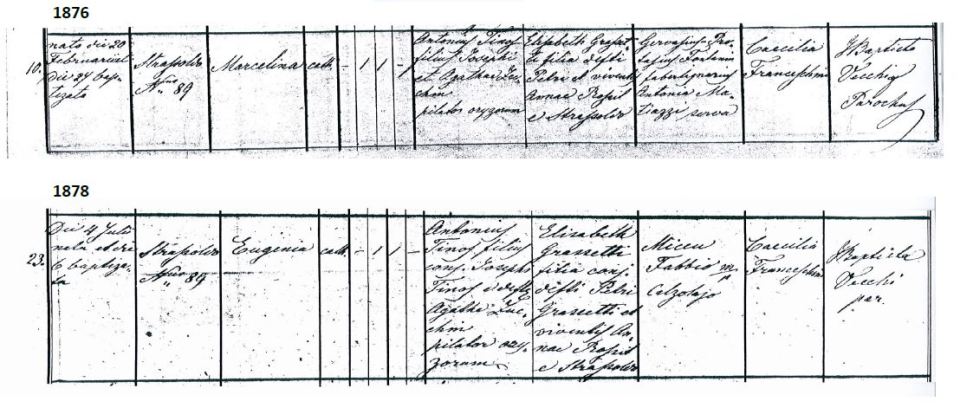 1876
10.
nata die 20
Februarii et
Die 27 bap-
tizata
Strapoldo
Nro 89
Marcelina
cath.
- 1 1 - 1
Antonius Tinos
filius Josephi
et Agathae Zuc
chin
pilator oryzorum
Elisabeth Grasset
ti filia defti
Petri et viventis
Annae Propit
e Strapoldo
Gervasius Pro-
tasius
Antonia Ma-
serva
Caecilia
Franceschini
JBaptista
Vecchi
Parochus
1878
23.
Die 4 Julii
nata et die
6 baptiza-
ta
Strapoldo
Nro 89
Eugenia
cath.
- 1 1 -
Antonius
Tinos filius
conj. Josephi
Tinos et deftae
Agathae Zuc-
chin
pilator ory-
zorum
Elisabeth
Grassetti
filia conj.
defti Petri
Grassetti et
viventis An-
nae Propit
e Strapoldo
Miceu
Fabbio mp
Calzolajo
Caecilia
Franceschini
JBaptista
Vecchi
par.